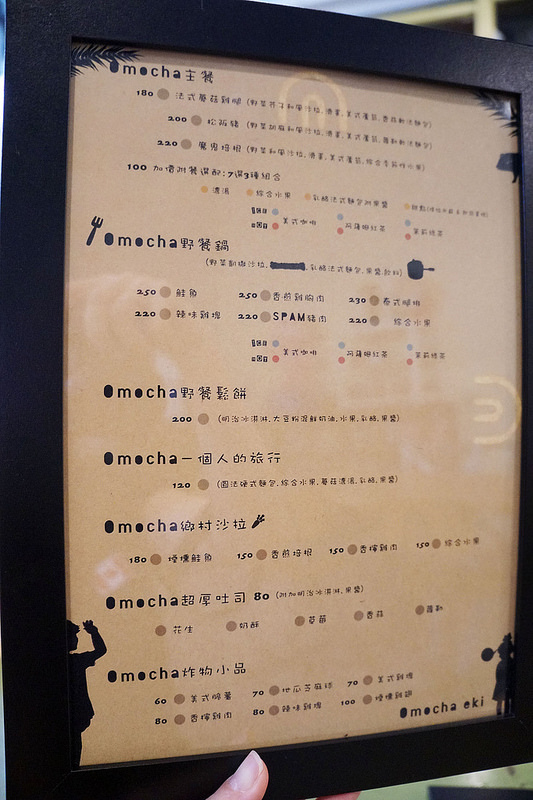 Omocha主餐
180 法式蘑菇雞腿 (野菜芥子和風沙拉.溏蛋.美式薯菇.香蒜軟法麵包)
200 松阪豬 (野菜胡麻和風沙拉.溏蛋.美式薯菇.蘿勒軟法麵包)
220 魔鬼培根 (野菜和風沙拉.溏蛋.美式薯菇.綜合季節性水果)
100 加價附餐選配:7選3種組合
濃湯 綜合水果 乳酪法式麵包附果醬
美式咖啡 阿薩姆紅茶 茉莉綠茶
Omocha野餐鍋
(野菜割烟沙拉. 乳酪法式麵包.果醬.飲料)
250 鮭魚 250 香煎雞胸肉 230 泰式腿排
220 辣味雞塊 220 SPAM豬肉 220 綜合水果
美式咖啡 阿薩姆紅茶 茉莉綠茶
Omocha野餐鬆餅
200 (明治冰淇淋.大豆粉混鮮奶油.水果.乳酪.果醬)
Omocha一個人的旅行
120 (圓法硬式麵包.綜合水果.蘑菇濃湯.乳酪.果醬)
Omocha鄉村沙拉
180 煙燻鮭魚 150 香煎培根 150 香檸雞肉 150 綜合水果
Omocha超厚吐司 80 (附加明治冰淇淋.果醬)
花生 奶酥 草莓 香蒜 蘿勒
Omocha炸物小品
60 美式脆薯 70 地瓜芝麻球 70 美式雞塊
80 香檸雞肉 80 辣味雞塊 100 煙燻雞翅
Omocha eki